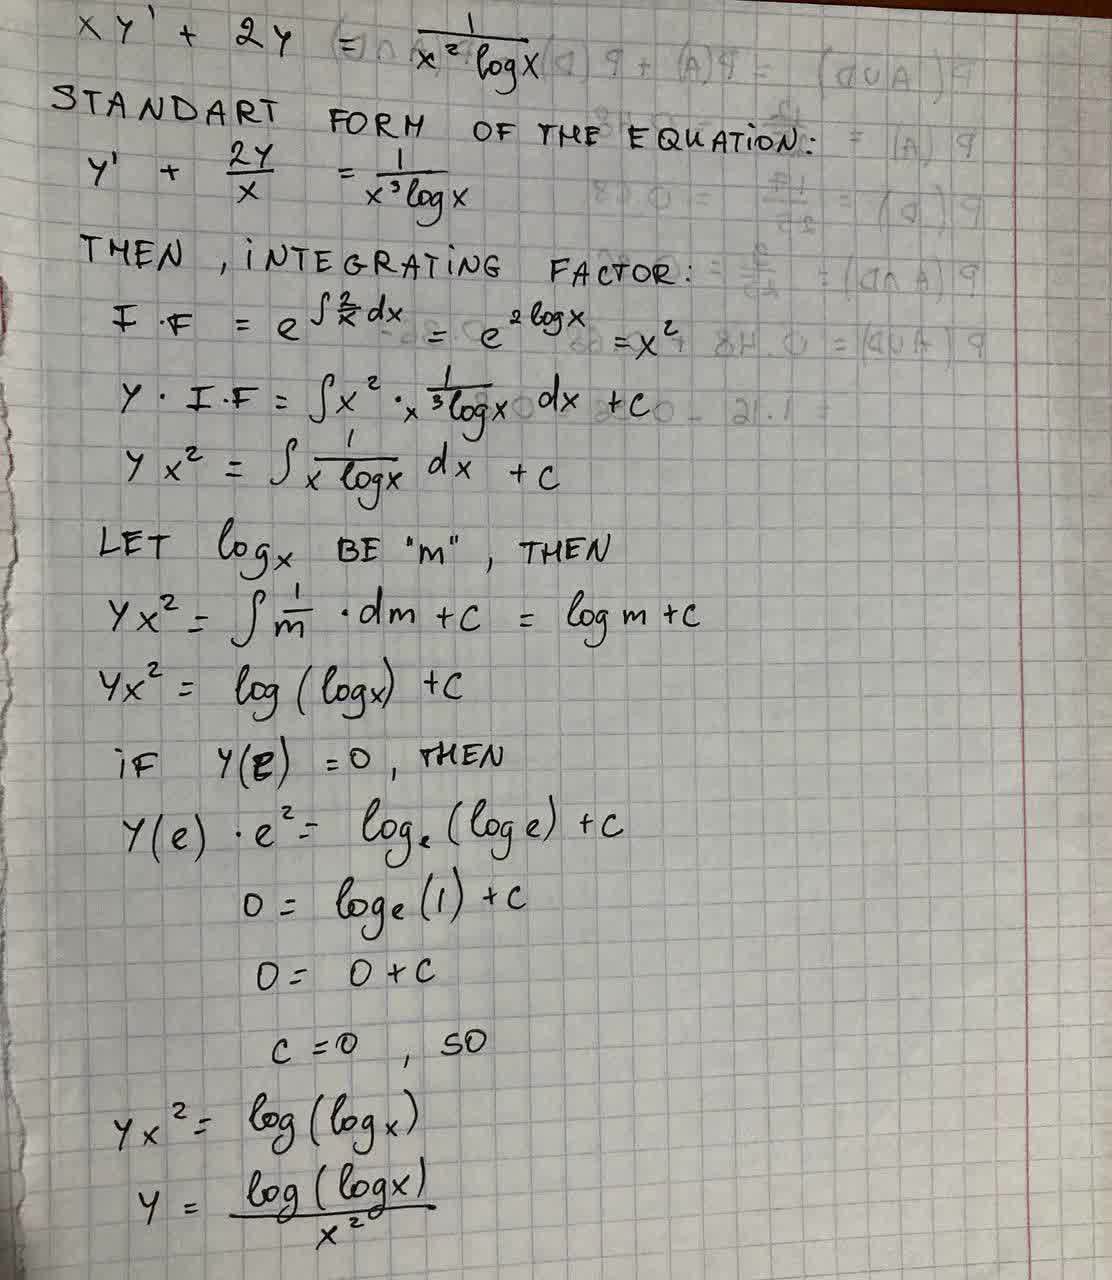 xy' + 2y = 1/(x² logx)
STANDART FORM OF THE EQUATION:
y' + 2y/x = 1/(x³ logx)
THEN, INTEGRATING FACTOR:
I.F = e^(∫ 2/x dx) = e^(2 logx) = x²
y · I.F = ∫x² · 1/(x³ logx) dx + c
yx² = ∫ 1/(x logx) dx + c
LET logx BE "m", THEN
yx² = ∫ 1/m · dm + c = log m + c
yx² = log (logx) + c
IF y(e) = 0, THEN
y(e) · e² = logₑ (log e) + c
0 = logₑ (1) + c
0 = 0 + c
c = 0, SO
yx² = log (logx)
y = log (logx)/x²